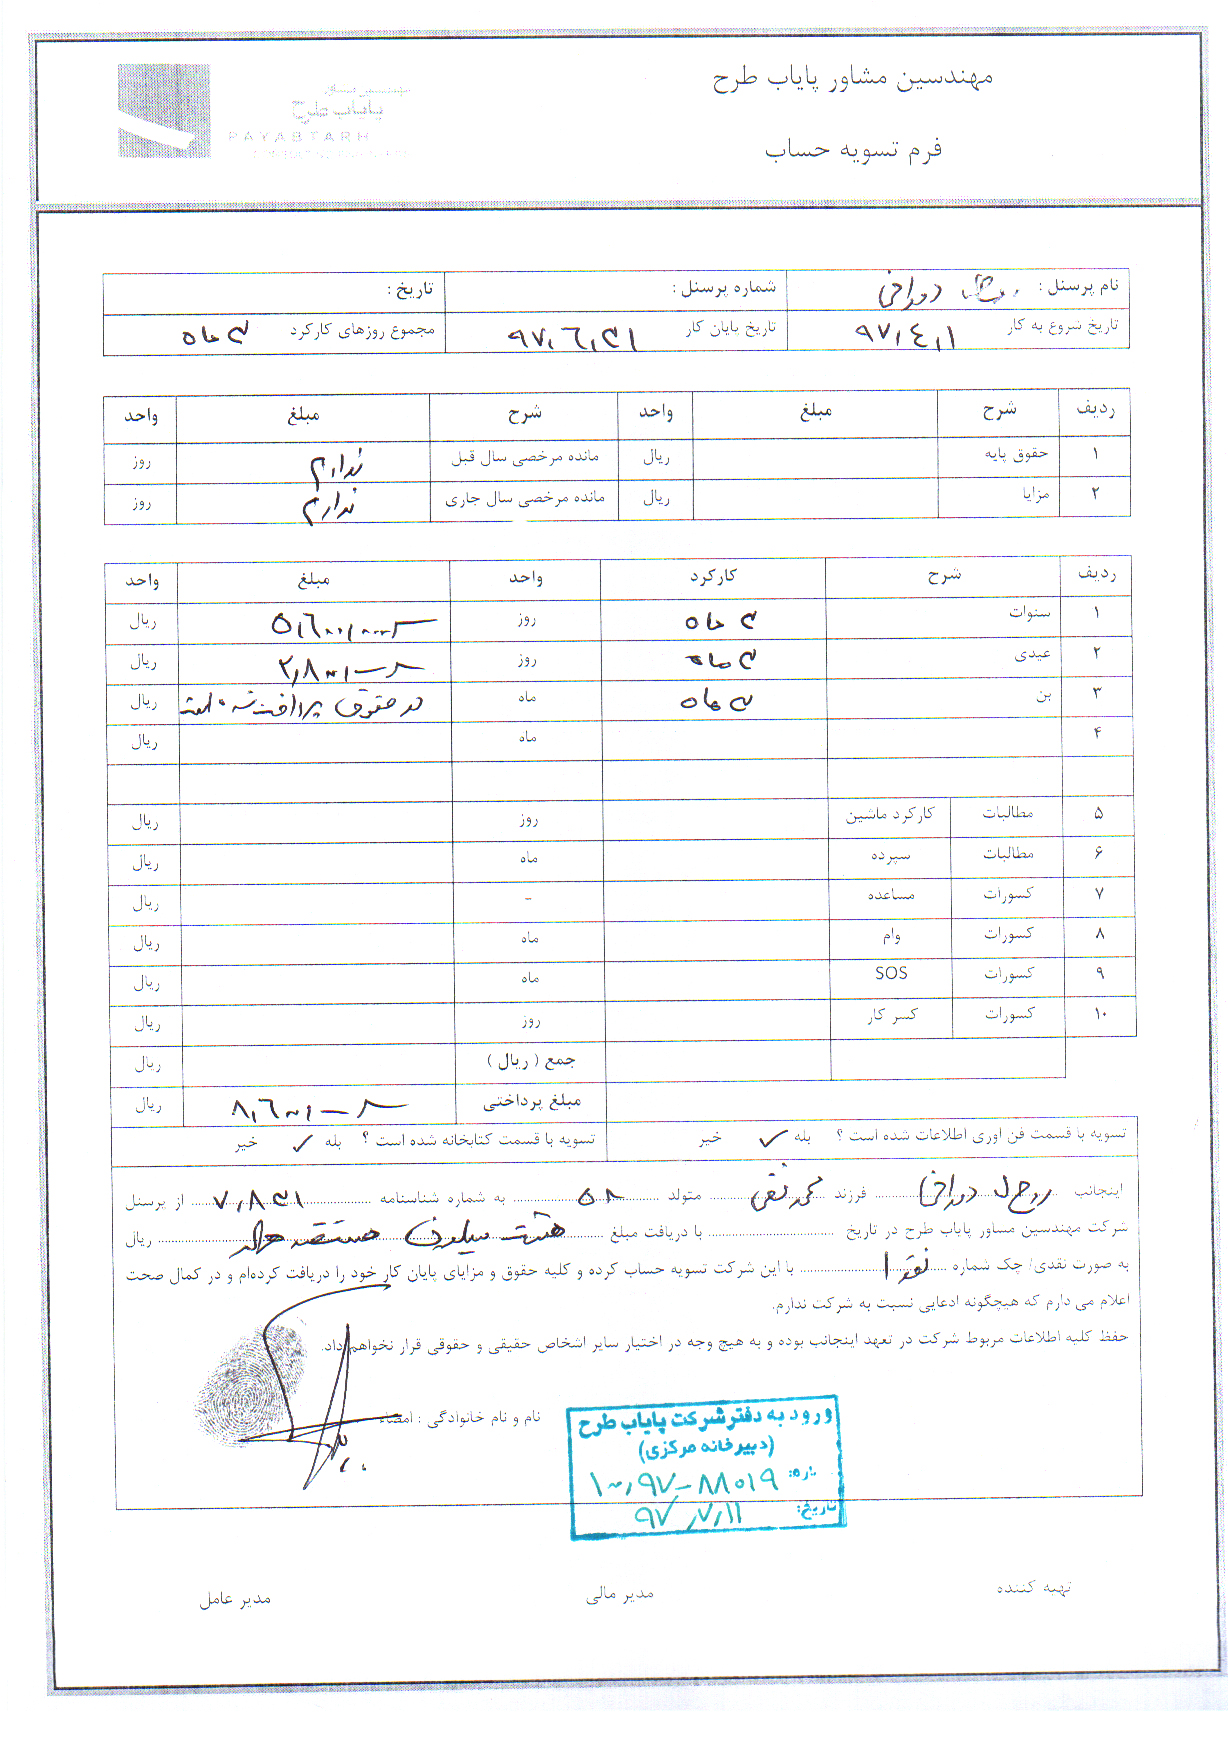 مهندسین مشاور پایاب طرح
فرم تسویه حساب
پایاب طرح
PAYABTARH
نام پرسنل :
شماره پرسنل :
تاریخ :
تاریخ شروع به کار ۹۷٫۴٫۱
تاریخ پایان کار ۹۷٫۶٫۳۱
مجموع روزهای کارکرد ۳ ماه
ردیف شرح مبلغ واحد شرح مبلغ واحد
۱ حقوق پایه ریال مانده مرخصی سال قبل ندارم روز
۲ مزایا ریال مانده مرخصی سال جاری ندارم روز
ردیف شرح کارکرد واحد مبلغ واحد
۱ سنوات ۳ ماه روز ۵٫۶۰۰٫۰۰۰ ریال
۲ عیدی ۳ ماه روز ۲٫۸۰۰٫۰۰۰ ریال
۳ بن ۳ ماه ماه در حقوق پرداخت شده است ریال
۴ ماه ریال
۵ مطالبات کارکرد ماشین روز ریال
۶ مطالبات سپرده ماه ریال
۷ کسورات مساعده - ریال
۸ کسورات وام ماه ریال
۹ کسورات SOS ماه ریال
۱۰ کسورات کسر کار روز ریال
جمع ( ریال ) ریال
مبلغ پرداختی ۸٫۶۰۰٫۰۰۰ ریال
تسویه با قسمت فن اوری اطلاعات شده است ؟ بله ✓ خیر
تسویه با قسمت کتابخانه شده است ؟ بله ✓ خیر
اینجانب فرزند محمد تقی متولد ۵۸ به شماره شناسنامه ۷٫۸۳۱ از پرسنل
شرکت مهندسین مساور پایاب طرح در تاریخ با دریافت مبلغ هشت میلیون ریال
به صورت نقدی/ چک شماره نقدا با این شرکت تسویه حساب کرده و کلیه حقوق و مزایای پایان کار خود را دریافت کرده‌ام و در کمال صحت
اعلام می دارم که هیچگونه ادعایی نسبت به شرکت ندارم.
حفظ کلیه اطلاعات مربوط شرکت در تعهد اینجانب بوده و به هیچ وجه در اختیار سایر اشخاص حقیقی و حقوقی قرار نخواهم داد.
نام و نام خانوادگی : امضاء
ورود به دفتر شرکت پایاب طرح
(دبیرخانه مرکزی)
۱۰۰٫۹۷-۸۸۰۱۹
تاریخ: ۹۷٫۷٫۱۱
تهیه کننده
مدیر مالی
مدیر عامل